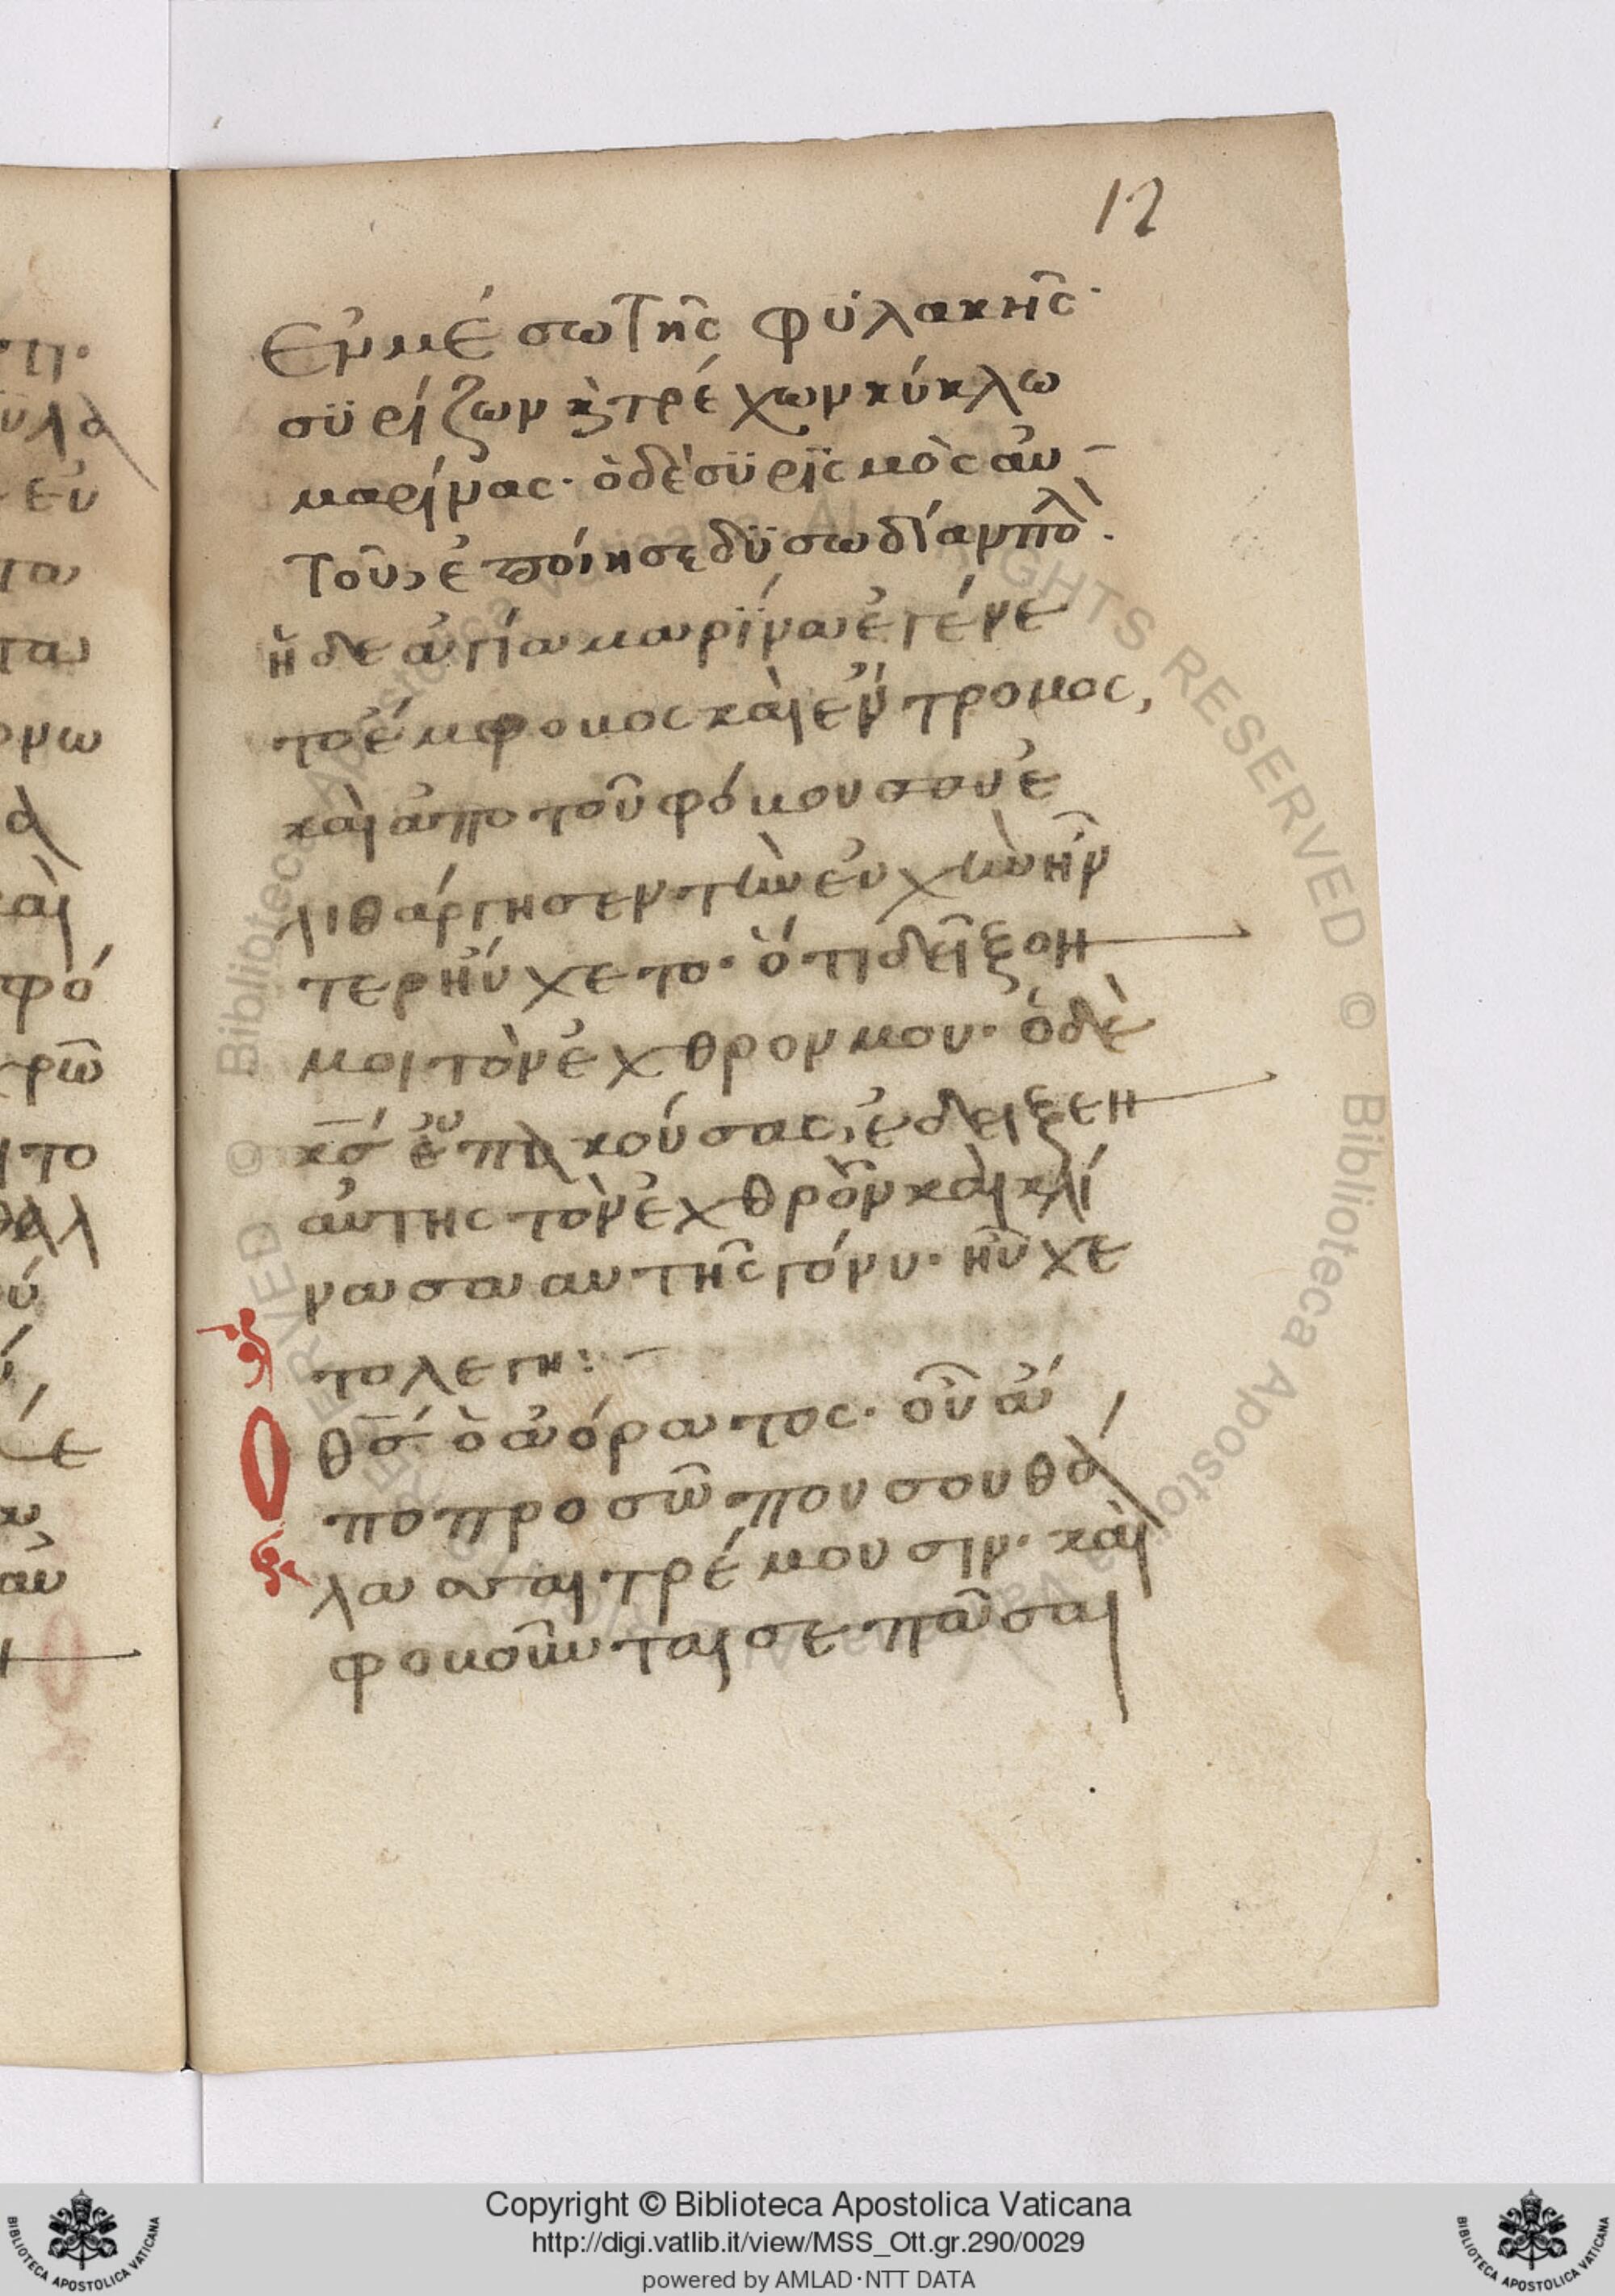 12
ἐμμέσω τῆς φυλακῆς·
σϋρίζων κ̀ τρέχων κύκλω
μαρίνας· ὁ δὲ σϋρισμὸς αὐ
τοῦ, ἐποίησε δϋσωδίαν πολ̀.
ἡ δε ἁγία μαρίνα ἐγένε
το ἔμφοβος και ἔντρομος,
και ἀπο τοῦ φόβου σου ἐ
λιθάργησεν τὼ ἐυχὼ ἣν
περ ηὔχετο· ὅτι δεῖξον
μοι τὸν ἐχθρον μου· ὁ δὲ
κσ́ ἐπακούσας, ἔδειξεν
αὐτης τὸν ἐχθρὸν και κλί
νασα αυτῆς γόνυ· ηὖχε
το λεγη:
Ο θσ́ ὁ ἀόρατος· οὗ ἀ
πο προσώπου σου θά
λασσαι τρέμουσιν· και
φοβοῦνται σε πᾶσαι
Copyright © Biblioteca Apostolica Vaticana
http://digi.vatlib.it/view/MSS_Ott.gr.290/0029
powered by AMLAD·NTT DATA